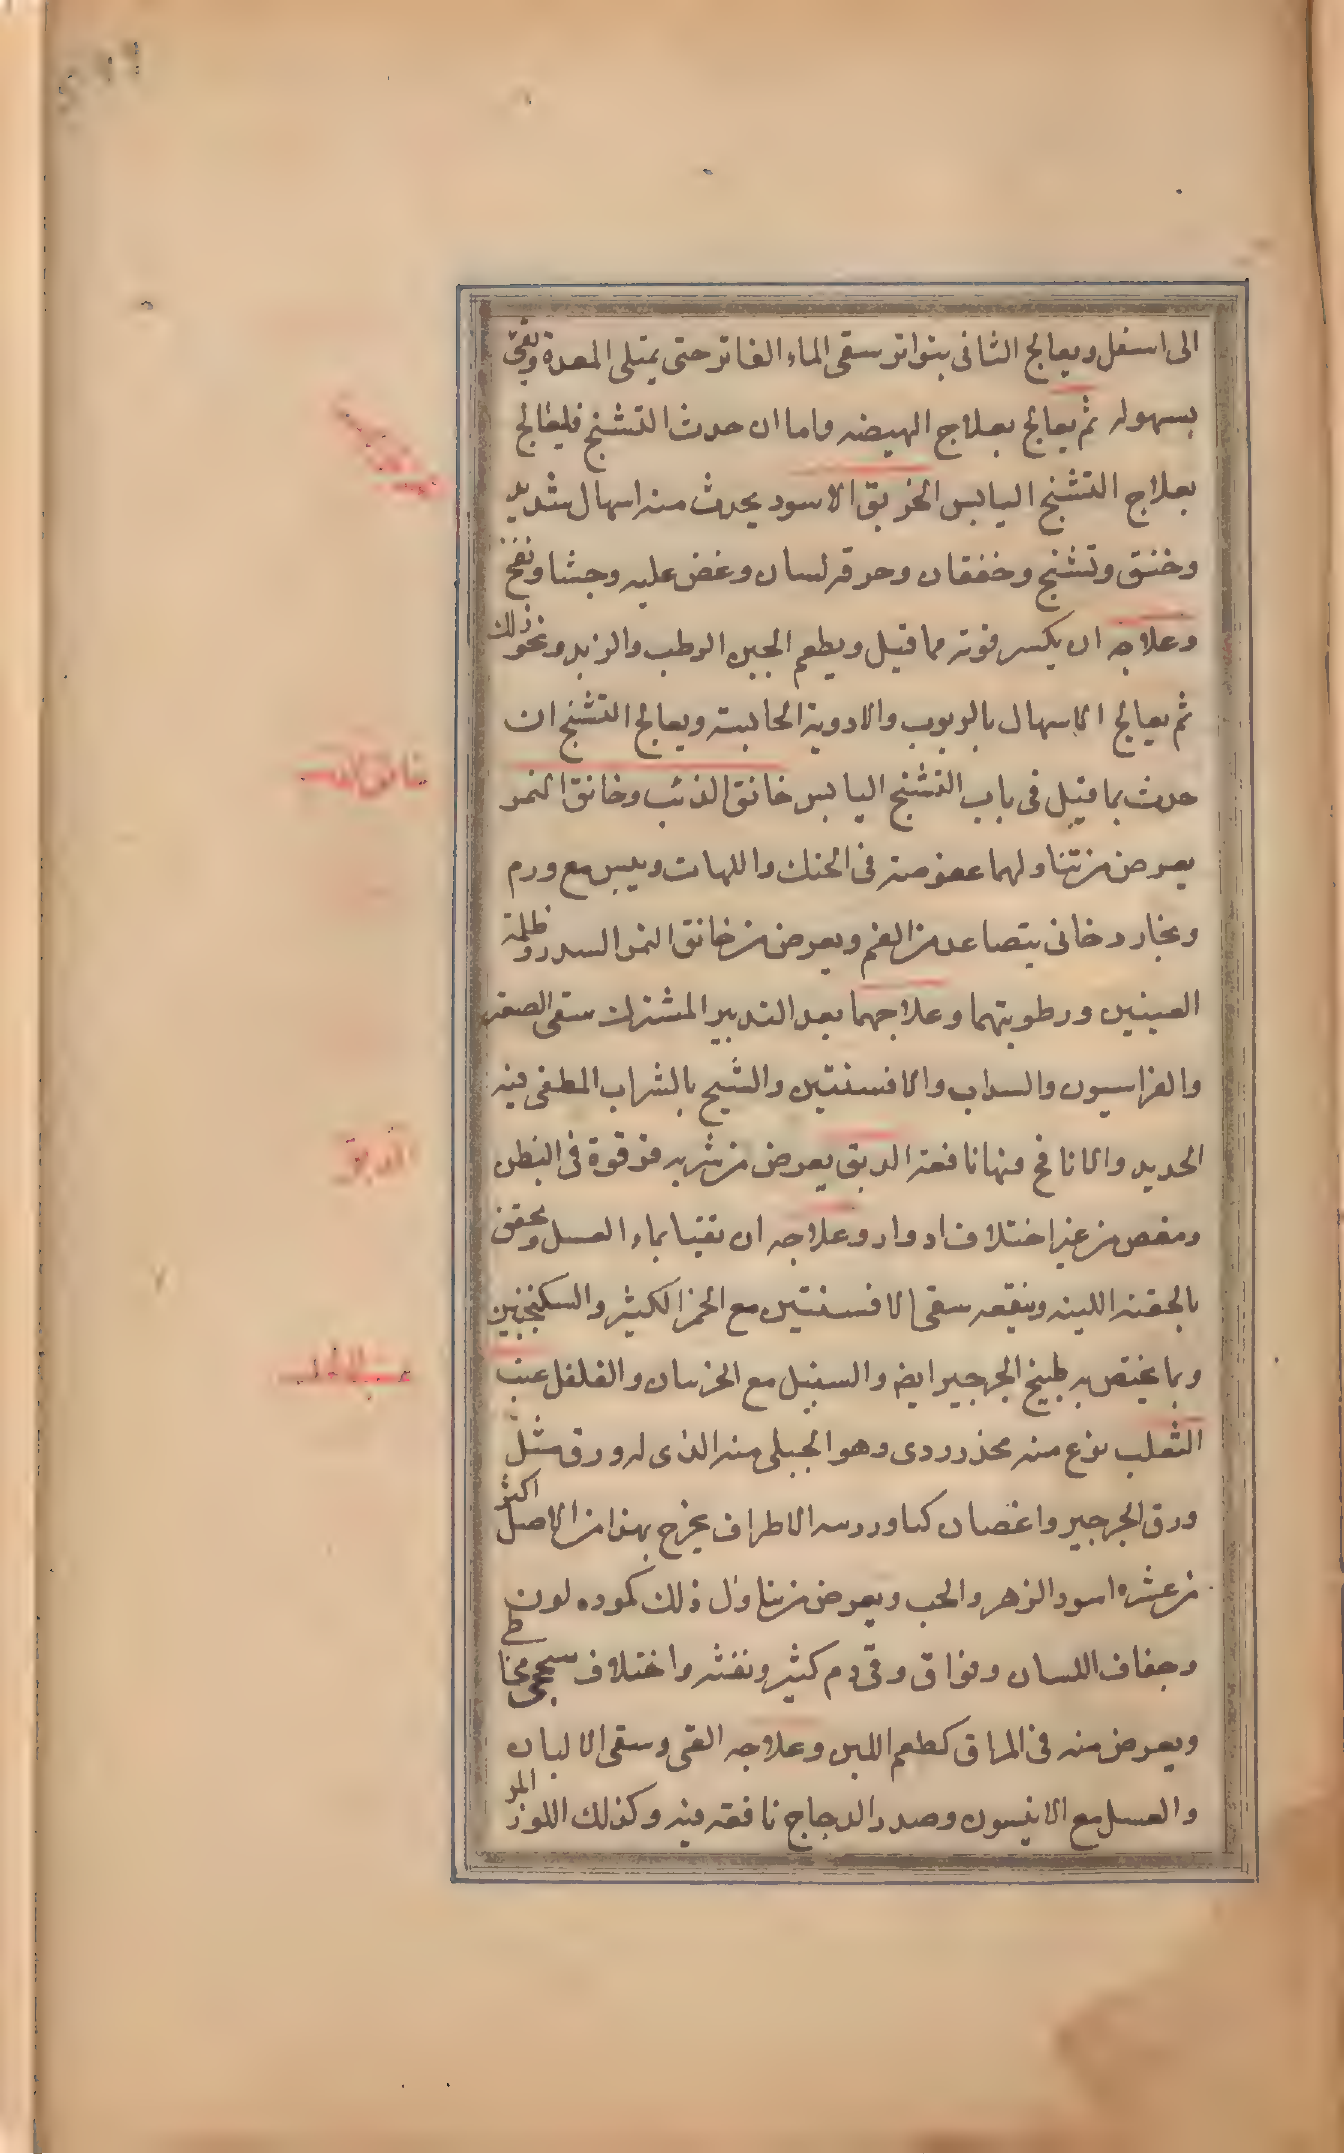 الى اسفل ويعالج الثانى بتواتر سقى الماء الفاتر حتى يمتلى المعدة ويقئ
بسهوله ثم يعالج بعلاج الهيضه واما ان حدث التشنج فليعالج
بعلاج التشنج اليابس الخربق الاسود يحدث منه اسهال شديد
وخنق وتشنج وخفقان وحرقه لسان وعض عليه وجشا ونفخ
وعلاجه ان يكسر قوته مما قيل ويطعم الجبن الرطب والزبد ونحو ذلك
ثم يعالج الاسهال بالربوب والادوية الحابسة ويعالج التشنج ان
حدث بما قيل فى باب التشنج اليابس خانق الذئب وخانق النمر
يعرض من تناولهما عفوصة فى الحنك واللهات ويبس مع ورم
وبخار دخانى يتصاعد من الفم ويعرض من خانق النمر السدر وظلمة
العينين ورطوبتهما وعلاجهما بعد التدبير المشترك سقى الصعتر
والفراسيون والسداب والافسنتين والشيح بالشراب المطفى فيه
الحديد والانافح فيها نافعة الدبق يعرض من شربه قرقرة فى البطن
ومغص من غير اختلاف ادوار وعلاجه ان تقيا بماء العسل وتحقن
بالحقنه اللينه وينفعه سقى الافسنتين مع الخمر الكثير والسكنجبين
وبما يختص به طبيخ الجرجير ايضا والسنبل مع الخرسان والفلفل عنب
الثعلب نوع منه مخدر ردى وهو الجبلى منه الذى له ورق مثل
ورق الجرجير واغصان كبا وردسه الاطراف يخرج بهذا من الاصل اكثر
من عشره اسود الزهر والحب ويعرض من تناول ذلك كموده لون
وجفاف اللسان وفواق وقئ دم كثير ونفثه واختلاف سحجى مخاطى
ويعرض منه فى المذاق كطعم اللبن وعلاجه القى وسقى الالبان
والعسل مع الانيسون وصدر الدجاج نافعه فيه وكذلك اللوز المر
خانق الذئب
الدبق
عنب الثعلب